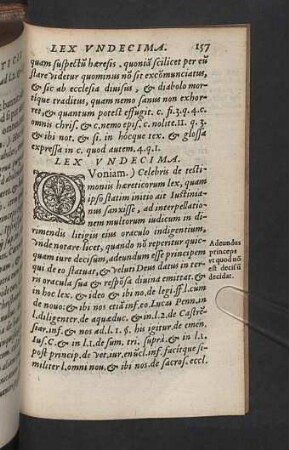 LEX VNDECIMA. 157
quam suspectũ hæresis. quoniã scilicet per eũ
stare videtur quominus nõ sit excõmunicatus,
& sic ab ecclesia diuisus, & diabolo mor-
tique traditus, quam nemo sanus non exhor-
ret, & quantum potest effugit. c. fi. 3. q. 4. c.
omnis chris. & c. nemo epis. c. nolite. 11. q. 3.
& ibi not. & si. in hocque tex. & glossa
expressa in c. quod autem. 4. q. 1.
LEX VNDECIMA.
QVoniam.) Celebris de testi-
moniis hæreticorum lex, quam
ipso statim initio ait Iustinia-
nus sanxisse, ad interpellatio-
nem multorum iudicum in di-
rimendis litigiis eius oraculo indigentium,
vnde notare licet, quando nõ reperitur quic-
quam iure decisum, adeundum esse principem
qui de eo statuat, & veluti Deus datus in ter-
ris oracula sua & respõsa diuina emittat. &
in hoc lex. & ideo & ibi no. de legi. ff. l. cum
de nouo: & ibi nos etiã inf. eo Lucas Penn. in
l. diligenter. de aquæduc. & in l. 2. de Castrē-
siar. inf. & nos ad. l. 2. §. his igitur. de emen.
Iuſ. C. & in l. 1. de sum. tri. suprà. & in l. 1.
post princip. de vet. iur. enucl. inf. facitque si-
militer l. omni nou. & ibi nos de sacros. eccl.
Adeundus
princeps
vt quod nõ
est decisũ
decidat.